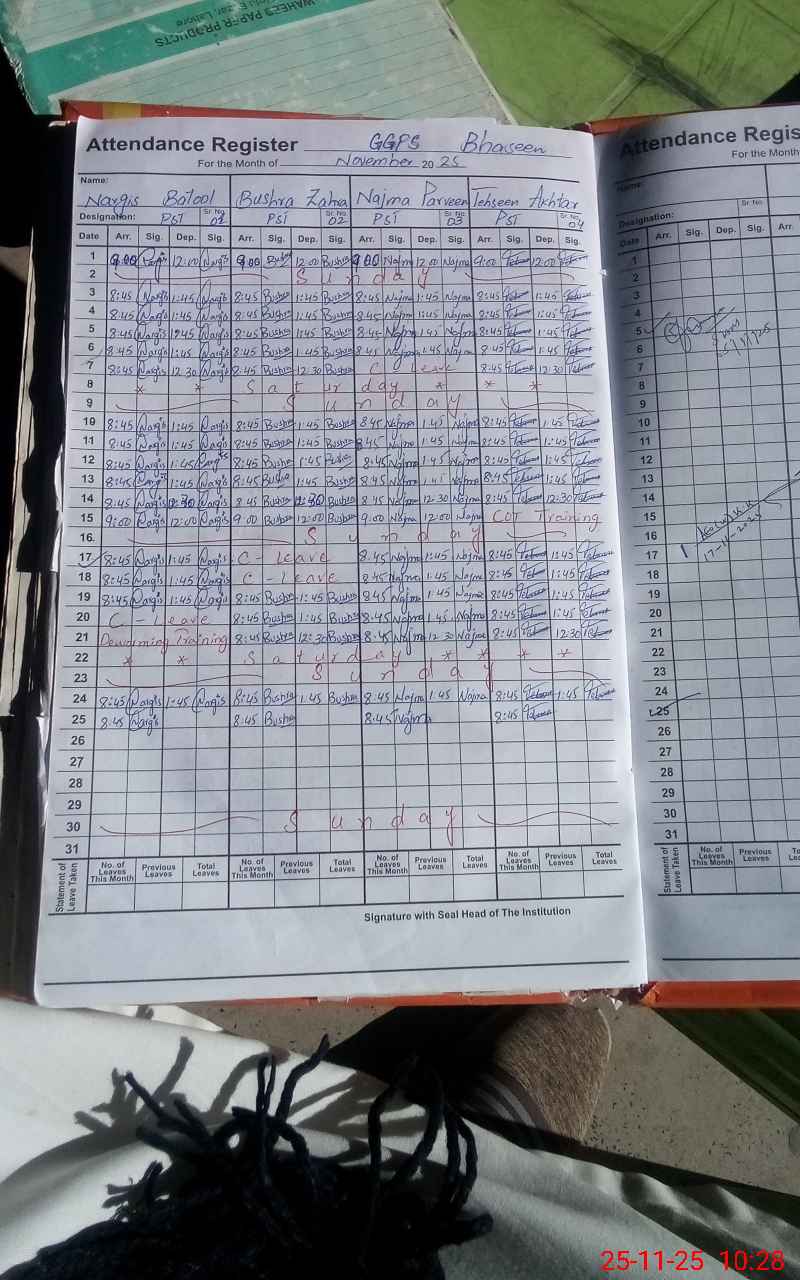 WAHEED PAPER PRODUCTS
Urdu Bazar, Lahore
Attendance Register GGPS Bhaseen
For the Month of November 2025
Name:
Nargis Batool Bushra Zahra Najma Parveen Tehseen Akhtar
Designation: PST Sr. No. 01 PST Sr. No. 02 PST Sr. No. 03 PST Sr. No. 04
Date Arr. Sig. Dep. Sig. Arr. Sig. Dep. Sig. Arr. Sig. Dep. Sig. Arr. Sig. Dep. Sig.
1 9:00 Nargis 12:00 Nargis 9:00 Bushra 12:00 Bushra 9:00 Najma 12:00 Najma 9:00 12:00
2 Sunday
3 8:45 Nargis 1:45 Nargis 8:45 Bushra 1:45 Bushra 8:45 Najma 1:45 Najma 8:45 1:45
4 8:45 Nargis 1:45 Nargis 8:45 Bushra 1:45 Bushra 8:45 Najma 1:45 Najma 8:45 1:45
5 8:45 Nargis 1:45 Nargis 8:45 Bushra 1:45 Bushra 8:45 Najma 1:45 Najma 8:45 1:45
6 8:45 Nargis 1:45 Nargis 8:45 Bushra 1:45 Bushra 8:45 Najma 1:45 Najma 8:45 1:45
7 8:45 Nargis 12:30 Nargis 8:45 Bushra 12:30 Bushra C Leave 8:45 12:30
8 * * Saturday * * *
9 Sunday
10 8:45 Nargis 1:45 Nargis 8:45 Bushra 1:45 Bushra 8:45 Najma 1:45 Najma 8:45 1:45
11 8:45 Nargis 1:45 Nargis 8:45 Bushra 1:45 Bushra 8:45 Najma 1:45 Najma 8:45 1:45
12 8:45 Nargis 1:45 Nargis 8:45 Bushra 1:45 Bushra 8:45 Najma 1:45 Najma 8:45 1:45
13 8:45 Nargis 1:45 Nargis 8:45 Bushra 1:45 Bushra 8:45 Najma 1:45 Najma 8:45 1:45
14 8:45 Nargis 12:30 Nargis 8:45 Bushra 12:30 Bushra 8:45 Najma 12:30 Najma 8:45 12:30
15 9:00 Nargis 12:00 Nargis 9:00 Bushra 12:00 Bushra 9:00 Najma 12:00 Najma COT Training
16 Sunday
17 8:45 Nargis 1:45 Nargis C-Leave 8:45 Najma 1:45 Najma 8:45 1:45
18 8:45 Nargis 1:45 Nargis C-Leave 8:45 Najma 1:45 Najma 8:45 1:45
19 8:45 Nargis 1:45 Nargis 8:45 Bushra 1:45 Bushra 8:45 Najma 1:45 Najma 8:45 1:45
20 C-Leave 8:45 Bushra 1:45 Bushra 8:45 Najma 1:45 Najma 8:45 1:45
21 Deworming Training 8:45 Bushra 12:30 Bushra 8:45 Najma 12:30 Najma 8:45 12:30
22 * * Saturday * * * *
23 Sunday
24 8:45 Nargis 1:45 Nargis 8:45 Bushra 1:45 Bushra 8:45 Najma 1:45 Najma 8:45 1:45
25 8:45 Nargis 8:45 Bushra 8:45 Najma 8:45
26
27
28
29
30 Sunday
31
Statement of Leave Taken No. of Leaves This Month Previous Leaves Total Leaves No. of Leaves This Month Previous Leaves Total Leaves No. of Leaves This Month Previous Leaves Total Leaves No. of Leaves This Month Previous Leaves Total Leaves
Signature with Seal Head of The Institution
Attendance Regis
For the Month
Name:
Designation: Sr. No
Date Arr. Sig. Dep. Sig. Arr.
1
2
3
4
5
6
7
8
9
10
11
12
13
14
15
16
17 17-11-2025
18
19
20
21
22
23
24
25
26
27
28
29
30
31
Statement of Leave Taken No. of Leaves This Month Previous Leaves Total Leaves No. of Leaves This Month Previous
25-11-25 10:28